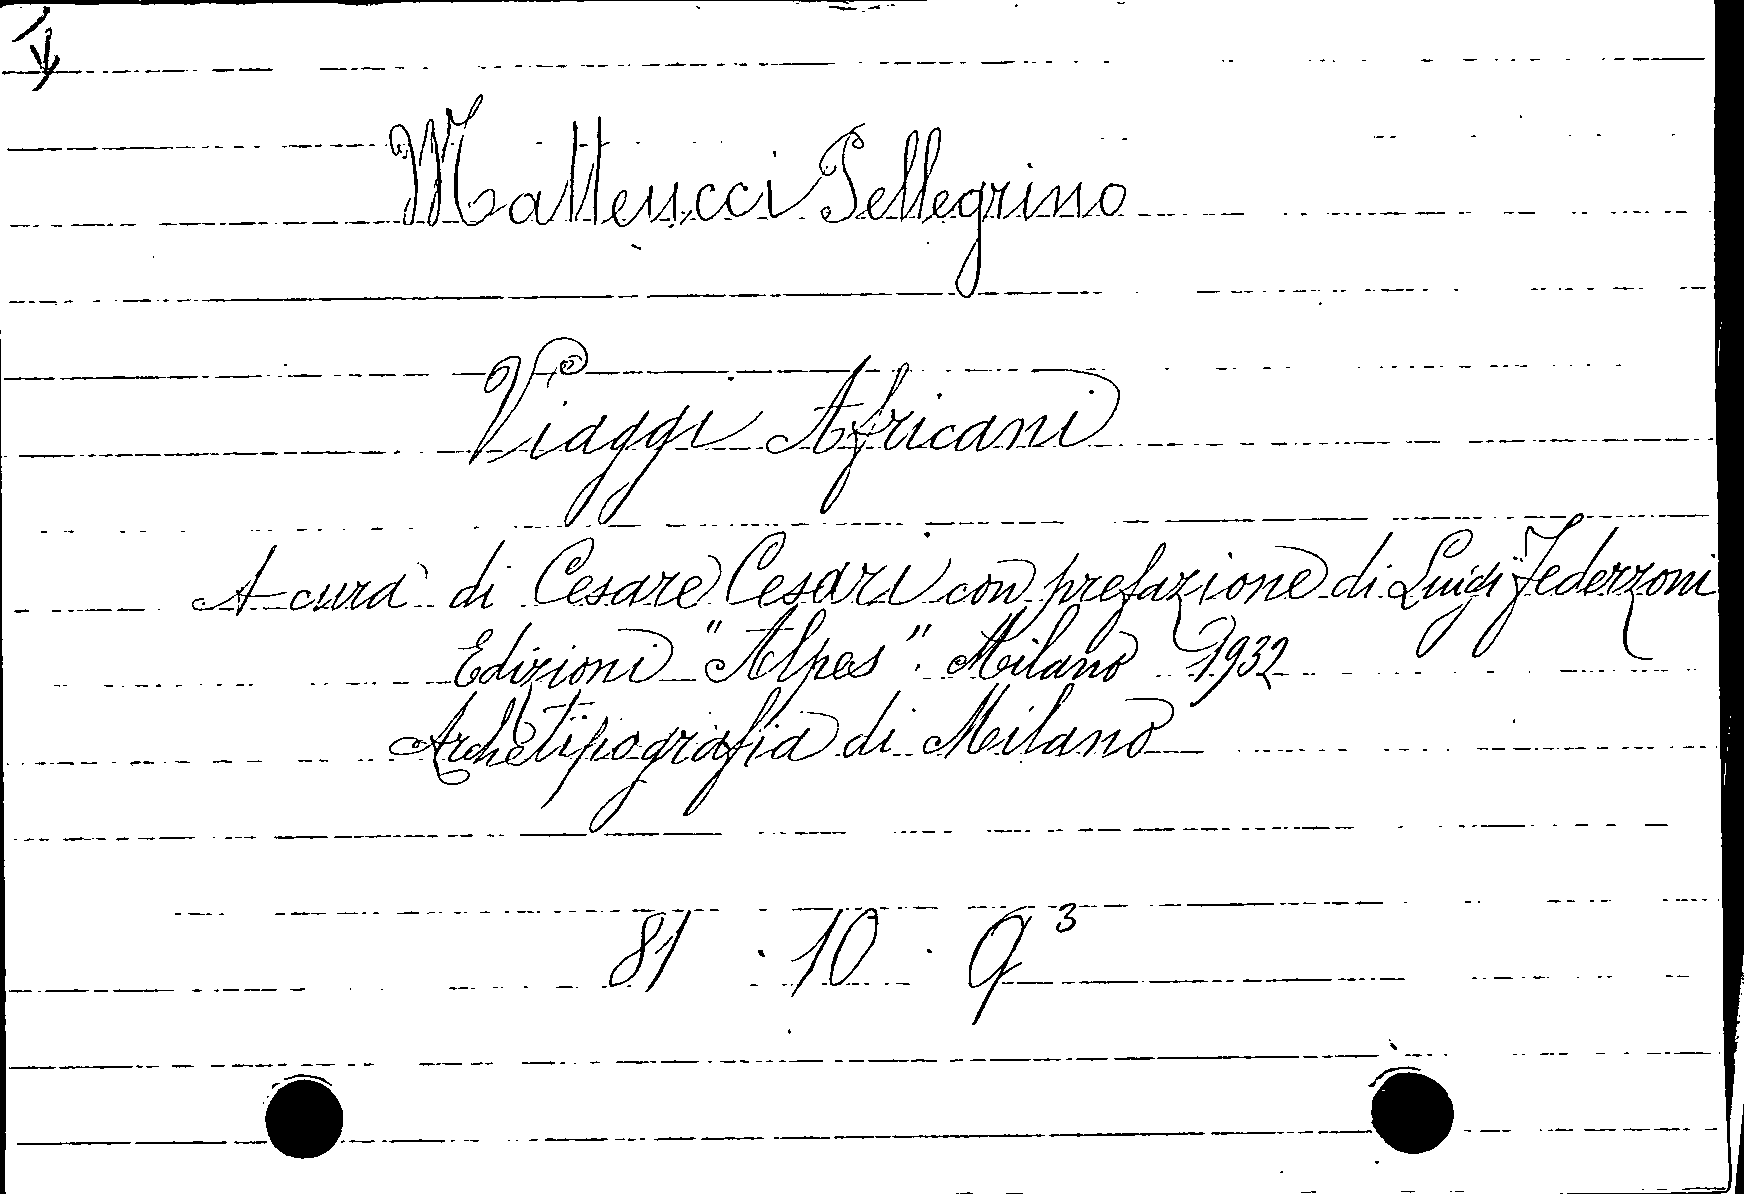 Matteucci Pellegrino
Viaggi Africani
A cura di Cesare Cesari con prefazione di Luigi Federzoni
Edizioni "Alpes". Milano 1932
Archetipografia di Milano
81 · 10 · 9³